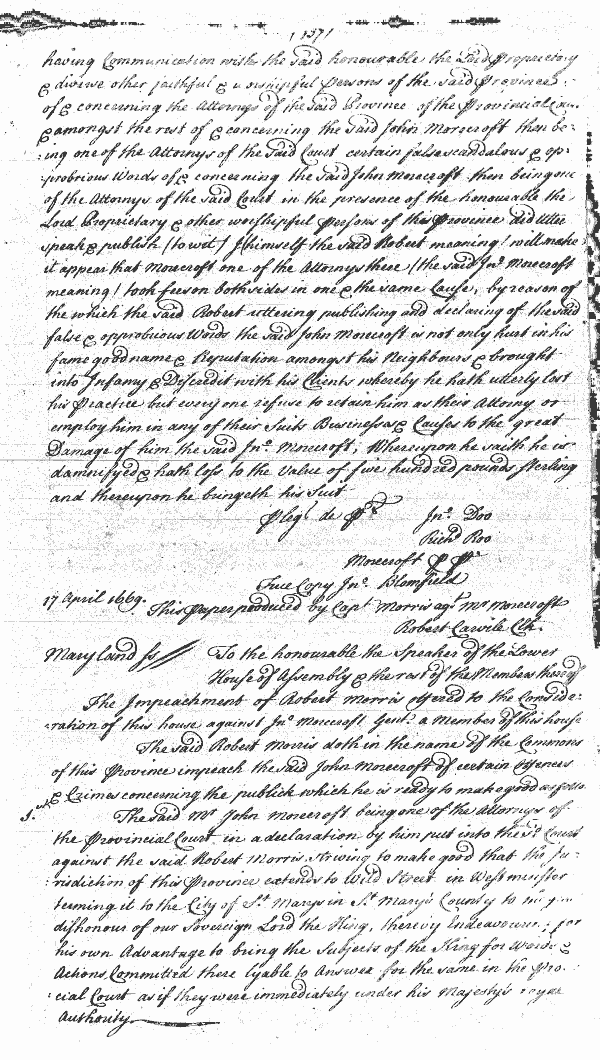 (137)
having Communication with the said honourable the Lord Proprietary
& diverse other faithful & worshipful Persons of the said Province
of & concerning the Attorneys of the said Province of the Provincial Cou
& amongst the rest of & concerning the said John Morecroft then be-
:ing one of the Attorneys of the said Court certain false scandalous & op-
:probrious Words of & concerning the said John Morecroft then being one
of the Attorneys of the said Court in the presence of the honourable the
Lord Proprietary & other worshipful Persons of this Province did utter
speak & publish (to wit) J (himself the said Robert meaning) will make
it appear that Morecroft one of the Attorneys there (the said Jno. Morecroft
meaning) took fees on both sides in one & the same Cause, by reason of
the which the said Robert uttering publishing and declaring of the said
false & opprobrious Words the said John Morecroft is not only hurt in his
fame good name & Reputation amongst his Neighbours & brought
into Infamy & Discredit with his Clients whereby he hath utterly lost
his Practice but every one refuse to retain him as their Attorney or
employ him in any of their Suits Businesses & Causes to the great
Damage of him the said Jno. Morecroft; Whereupon he saith he is
damnifyed & hath loss to the value of five hundred pounds sterling
and thereupon he bringeth his suit
Pleg. de Jno. Doo
Richd. Roo
Morecroft
True Copy Jno. Blomfield
17 April 1669. This Paper produced by Capt Morris agt. Mr Morecroft
Robert Carvile Clk.
Maryland ss To the honourable the Speaker of the Lower
House of Assembly & the rest of the Members thereof
The Impeachment of Robert Morris offered to the Conside:
:ration of this house against Jno. Morecroft Gent. a Member of this house
The said Robert Morris doth in the name of the Commons
of this Province impeach the said John Morecroft of certain offences
& Crimes concerning the publick which he is ready to make good as follo
1.st The said Mr. John Morecroft being one of the Attorneys of
the Provincial Court in a declaration by him put into the sd. Court
against the said Robert Morris striving to make good that the Ju-
:risdiction of this Province extends to Wild Street in Westminster
terming it to the City of St. Marys in St. Mary's County to the
dishonour of our Sovereign Lord the King, thereby Endeavouring for
his own Advantage to bring the Subjects of the King for Words &
Actions Committed there lyable to Answer for the same in the Pro-
:cial Court as if they were immediately under his Majesty's royal
Authority